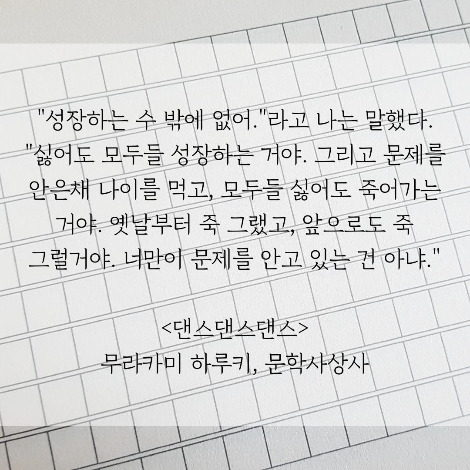 "성장하는 수 밖에 없어."라고 나는 말했다.
"싫어도 모두들 성장하는 거야. 그리고 문제를
안은채 나이를 먹고, 모두들 싫어도 죽어가는
거야. 옛날부터 죽 그랬고, 앞으로도 죽
그럴거야. 너만이 문제를 안고 있는 건 아냐."
<댄스댄스댄스>
무라카미 하루키, 문학사상사